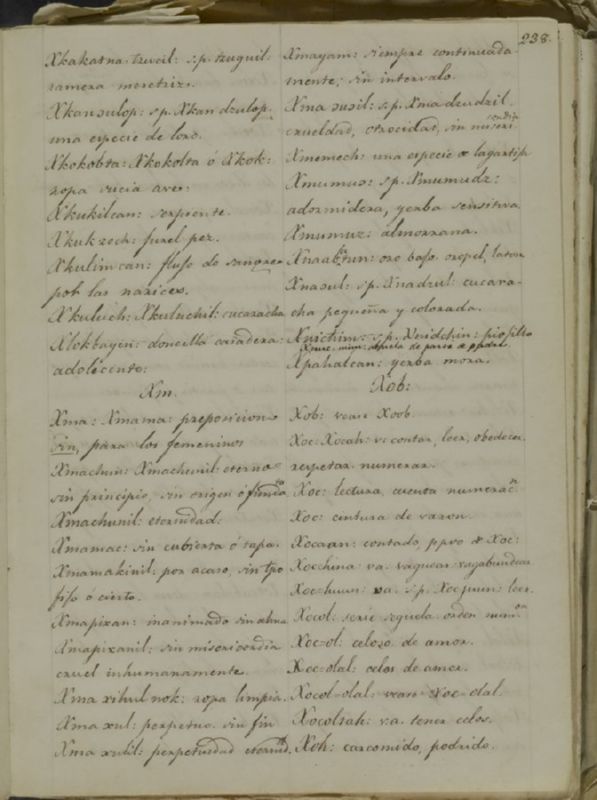 238.
Xkakatna tzucil: s.p. tzuquil:
ramera meretriz.
Xkansulop: s.p. Xkan dzulop,
una especie de loro.
Xkokobta: Xkokolta ó Xkok:
ropa sucia ave:
Xkukilcan: serpiente.
Xkukzoch: furel pez.
Xkulim can: flujo de sangre
por las narices.
Xkuluch: Xkuluchil: cucaracha
Xlokbayén: doncella casadera
adolecente:
Xm.
Xma: Xmama: preposicion
sin, para los femeninos
Xmachun: Xmachunil: eterno
sin principio, sin origen ó
Xmachunil: eternidad:
Xmamac: sin cubierta ó tapa.
Xmamakinil: por acaso, sin tpo
fijo ó cierto.
Xmapixan: inanimado sin alma
Xmapixanil: sin misericordia
cruel inhumanamente.
Xma xihul nok: ropa limpia.
Xma xul: perpetuo sin fin
Xma xulil: perpetuidad eternid.
Xmayam: siempre continuada-
mente, sin intervalo.
Xma susil: s.p. Xma dzudzil
crueldad, atrocidad, sin misericordia
Xmemech: una especie de lagartija
Xmumus: s.p. Xmumudz:
adormidera, yerba sensitiva
Xmumuz: almorrana.
Xnaabtun: oro bajo. oropel, laton
Xnasul: s.p. Xnadzul: cucara-
cha pequeña y colorada.
Xnichim: s.p. Xnidchin: piojillo
Xpahalcan: yerba mora.
Xob:
Xob: vease Xoob.
Xoc: Xocah: v: contar, leer, obedecer
respetar numerar.
Xoc: lectura cuenta numeracn
Xoc: cintura de varon.
Xocaan: contado, ppvo de Xoc:
Xoc-hina: va. vaguear vagabundear
Xoc-huun: va. s.p. Xocjuun: leer.
Xocol: serie seguela orden numon
Xoc-ol: celoso de amor.
Xoc-olal: celos de amor.
Xocol-olal: vease Xoc-olal.
Xocolzah: v.a. tener celos.
Xoh: carcomido, podrido.